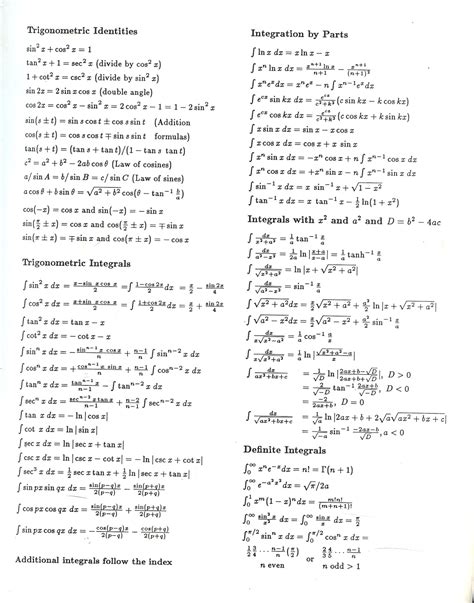 Trigonometric Identities
sin² x + cos² x = 1
tan² x + 1 = sec² x (divide by cos² x)
1 + cot² x = csc² x (divide by sin² x)
sin 2x = 2 sin x cos x (double angle)
cos 2x = cos² x − sin² x = 2 cos² x − 1 = 1 − 2 sin² x
sin(s ± t) = sin s cos t ± cos s sin t (Addition
cos(s ± t) = cos s cos t ∓ sin s sin t formulas)
tan(s + t) = (tan s + tan t)/(1 − tan s tan t)
c² = a² + b² − 2ab cos θ (Law of cosines)
a/ sin A = b/ sin B = c/ sin C (Law of sines)
a cos θ + b sin θ = √(a² + b²) cos(θ − tan⁻¹ b/a)
cos(−x) = cos x and sin(−x) = − sin x
sin(π/2 ± x) = cos x and cos(π/2 ± x) = ∓ sin x
sin(π ± x) = ∓ sin x and cos(π ± x) = − cos x
Trigonometric Integrals
∫ sin² x dx = (x−sin x cos x)/2 = ∫ (1−cos 2x)/2 dx = x/2 − (sin 2x)/4
∫ cos² x dx = (x+sin x cos x)/2 = ∫ (1+cos 2x)/2 dx = x/2 + (sin 2x)/4
∫ tan² x dx = tan x − x
∫ cot² x dx = − cot x − x
∫ sinⁿ x dx = − (sinⁿ⁻¹ x cos x)/n + (n−1)/n ∫ sinⁿ⁻² x dx
∫ cosⁿ x dx = + (cosⁿ⁻¹ x sin x)/n + (n−1)/n ∫ cosⁿ⁻² x dx
∫ tanⁿ x dx = (tanⁿ⁻¹ x)/(n−1) − ∫ tanⁿ⁻² x dx
∫ secⁿ x dx = (secⁿ⁻² x tan x)/(n−1) + (n−2)/(n−1) ∫ secⁿ⁻² x dx
∫ tan x dx = − ln | cos x|
∫ cot x dx = ln | sin x|
∫ sec x dx = ln | sec x + tan x|
∫ csc x dx = ln | csc x − cot x| = − ln | csc x + cot x|
∫ sec³ x dx = ½ sec x tan x + ½ ln | sec x + tan x|
∫ sin px sin qx dx = sin(p−q)x/2(p−q) − sin(p+q)x/2(p+q)
∫ cos px cos qx dx = sin(p−q)x/2(p−q) + sin(p+q)x/2(p+q)
∫ sin px cos qx dx = − cos(p−q)x/2(p−q) − cos(p+q)x/2(p+q)
Additional integrals follow the index
Integration by Parts
∫ ln x dx = x ln x − x
∫ xⁿ ln x dx = (xⁿ⁺¹ ln x)/(n+1) − xⁿ⁺¹/(n+1)²
∫ xⁿeˣdx = xⁿeˣ − n ∫ xⁿ⁻¹eˣdx
∫ eᶜˣ sin kx dx = eᶜˣ/(c²+k²) (c sin kx − k cos kx)
∫ eᶜˣ cos kx dx = eᶜˣ/(c²+k²) (c cos kx + k sin kx)
∫ x sin x dx = sin x − x cos x
∫ x cos x dx = cos x + x sin x
∫ xⁿ sin x dx = −xⁿ cos x + n ∫ xⁿ⁻¹ cos x dx
∫ xⁿ cos x dx = +xⁿ sin x − n ∫ xⁿ⁻¹ sin x dx
∫ sin⁻¹ x dx = x sin⁻¹ x + √(1 − x²)
∫ tan⁻¹ x dx = x tan⁻¹ x − ½ ln(1 + x²)
Integrals with x² and a² and D = b² − 4ac
∫ dx/(x²+a²) = 1/a tan⁻¹ x/a
∫ dx/√(x²+a²) = ln |x + √(x² + a²)|
∫ dx/√(a²−x²) = sin⁻¹ x/a
∫ √(a² − x²) dx = x/2 √(a² − x²) + a²/2 sin⁻¹ x/a
Definite Integrals
∫₀^∞ xⁿe⁻ˣdx = n! = Γ(n + 1)
∫₀^∞ e^(−a²x²) dx = √π/2a
∫₀¹ xᵐ(1 − x)ⁿdx = m!n!/(m+n+1)!
∫₀^(π/2) sinⁿ x dx = ∫₀^(π/2) cosⁿ x dx =
or
n even n odd > 1